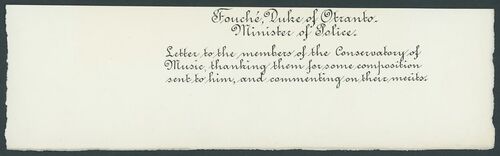 Fouché, Duke of Otranto.
Minister of Police.
Letter to the members of the Conservatory of
Music, thanking them for some composition
sent to him, and commenting on their merits.